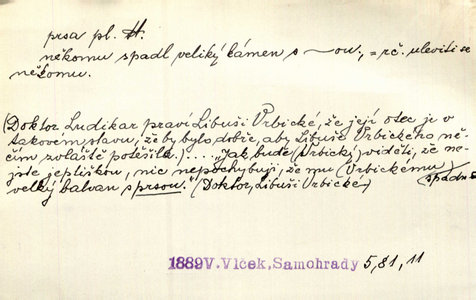 prsa pl. H.
někomu spadl veliký kámen s ~ou, = rč. uleviti se
někomu.
(Doktor Ludikar praví Libuši Vrbické, že její otec je v
takovém stavu, že by bylo dobře, aby Libuše Vrbického ně-
čím zvláště potěšila.) .... „Jak bude (Vrbický) viděti, že ne-
jste jeptiškou, nic nepochybuji, že mu (Vrbickému) spadne
velký balvan s prsou." (Doktor, Libuši Vrbické)
1889 V. Vlček, Samohrady 5, 81, 11